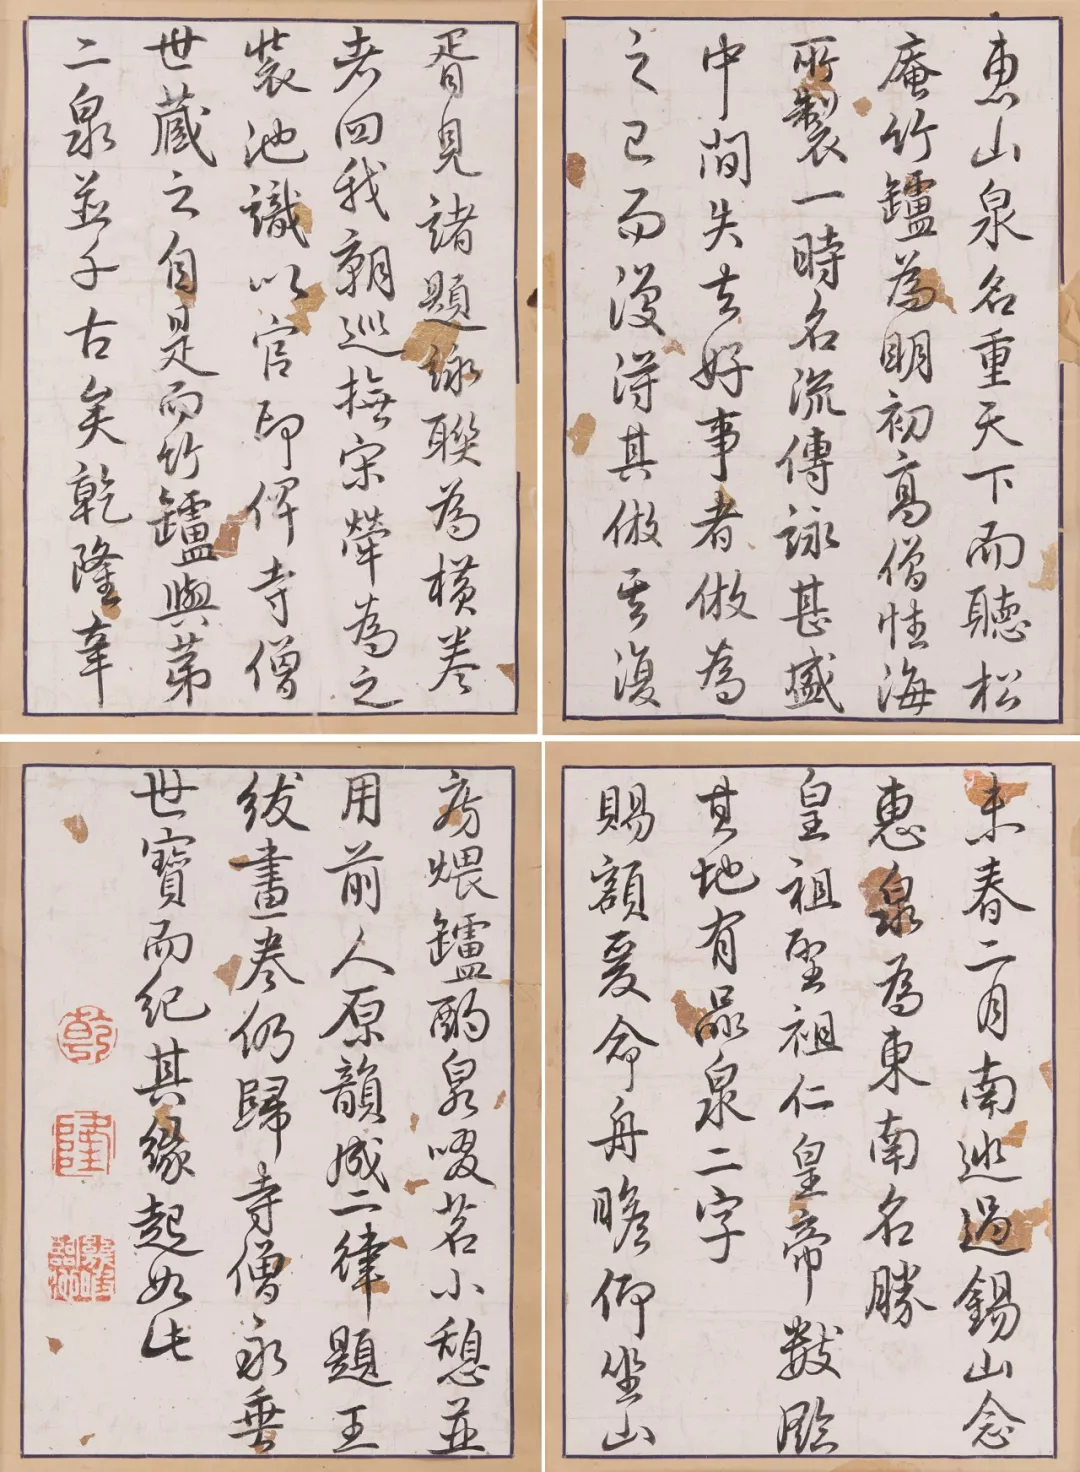 惠山泉名重天下而聽松
庵竹鑪為明初高僧性海
所製一時名流傳詠甚盛
中間失去好事者倣為
之已而復得其倣者復
胥見諸題詠聯為橫卷
者四我朝巡撫宋犖為之
裝池識以官印俾寺僧
世藏之自是而竹鑪與第
二泉並千古矣乾隆辛
未春二月南巡過錫山念
惠泉為東南名勝
皇祖聖祖仁皇帝數臨
其地有品泉二字
賜額爰命舟瞻仰坐山
房煨鑪酌泉啜茗小憩並
用前人原韻成二律題王
紱畫卷仍歸寺僧永垂
世寶而紀其緣起如此
乾
隆